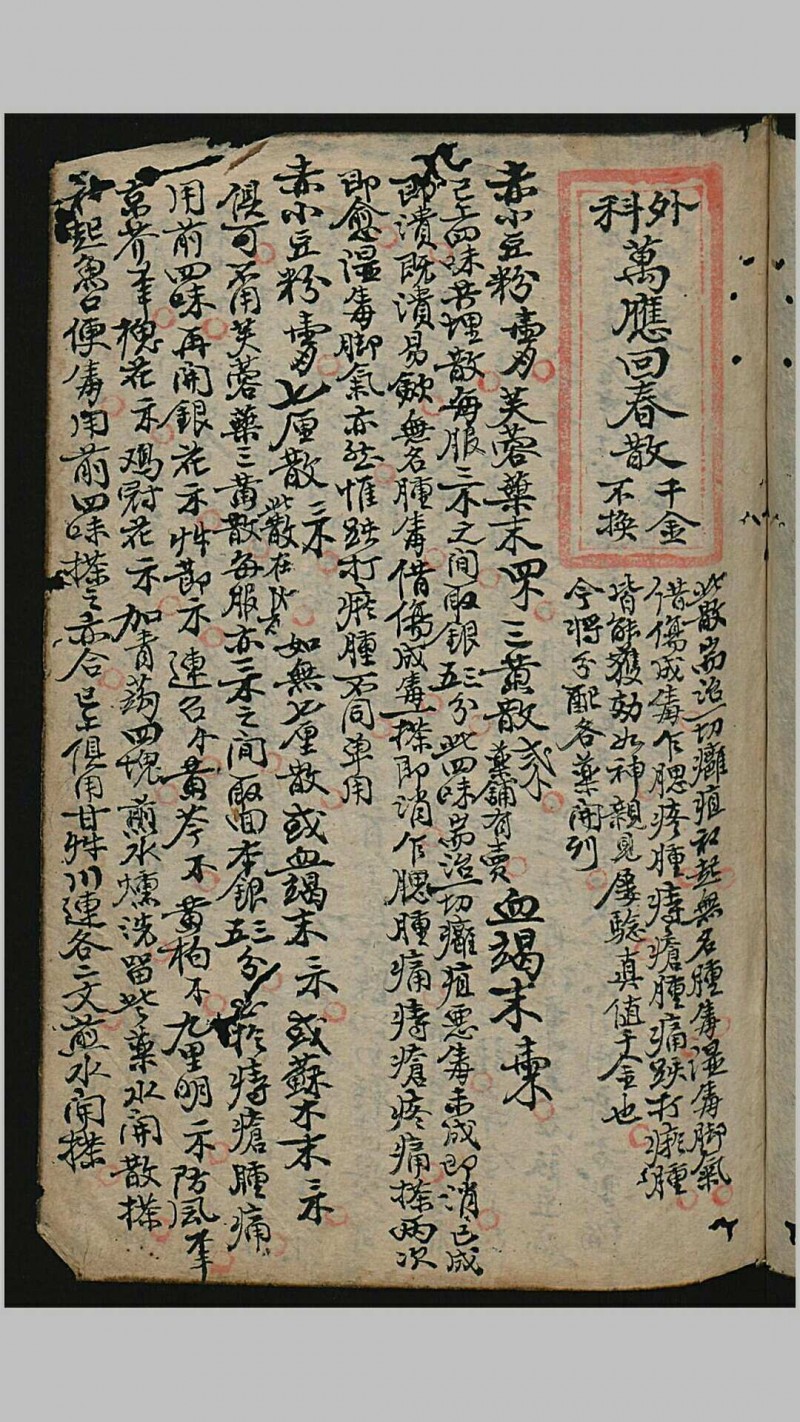 外科
萬應回春散
千金
不換
此散耑治一切癰疽初起無名腫毒湿毒脚氣
借傷成毒乍腮疼腫痔瘡腫痛跌打瘀腫
皆能獲効如神親見屢騐真值千金也
今將分配各藥開列
赤小豆粉 芙蓉葉末四 三黃散 藥舖有賣 血竭末
已上四味共埋散每服三 之間取銀五三分此四味耑治一切癰疽惡毒未成即消已成
即潰既潰易歛無名腫毒借傷成毒一搽即消乍腮腫痛痔瘡疼痛搽兩次
即愈湿毒脚氣亦然惟跌打瘀腫不同单用
赤小豆粉 七厘散 此散在 如無七厘散或血竭末 或蘇木末
俱可不用芙蓉葉三黃散每服亦三 之間取回本銀五三分 於痔瘡腫痛
用前四味再開銀花 艸節 連召 黃芩 黃柏 九里明 防風
京芥 槐花 鸡冠花 加青蒟四塊煎水燻洗留些藥水開散搽
初起魚口便毒用前四味搽之亦合已上俱用甘艸川連各二文煎水開搽